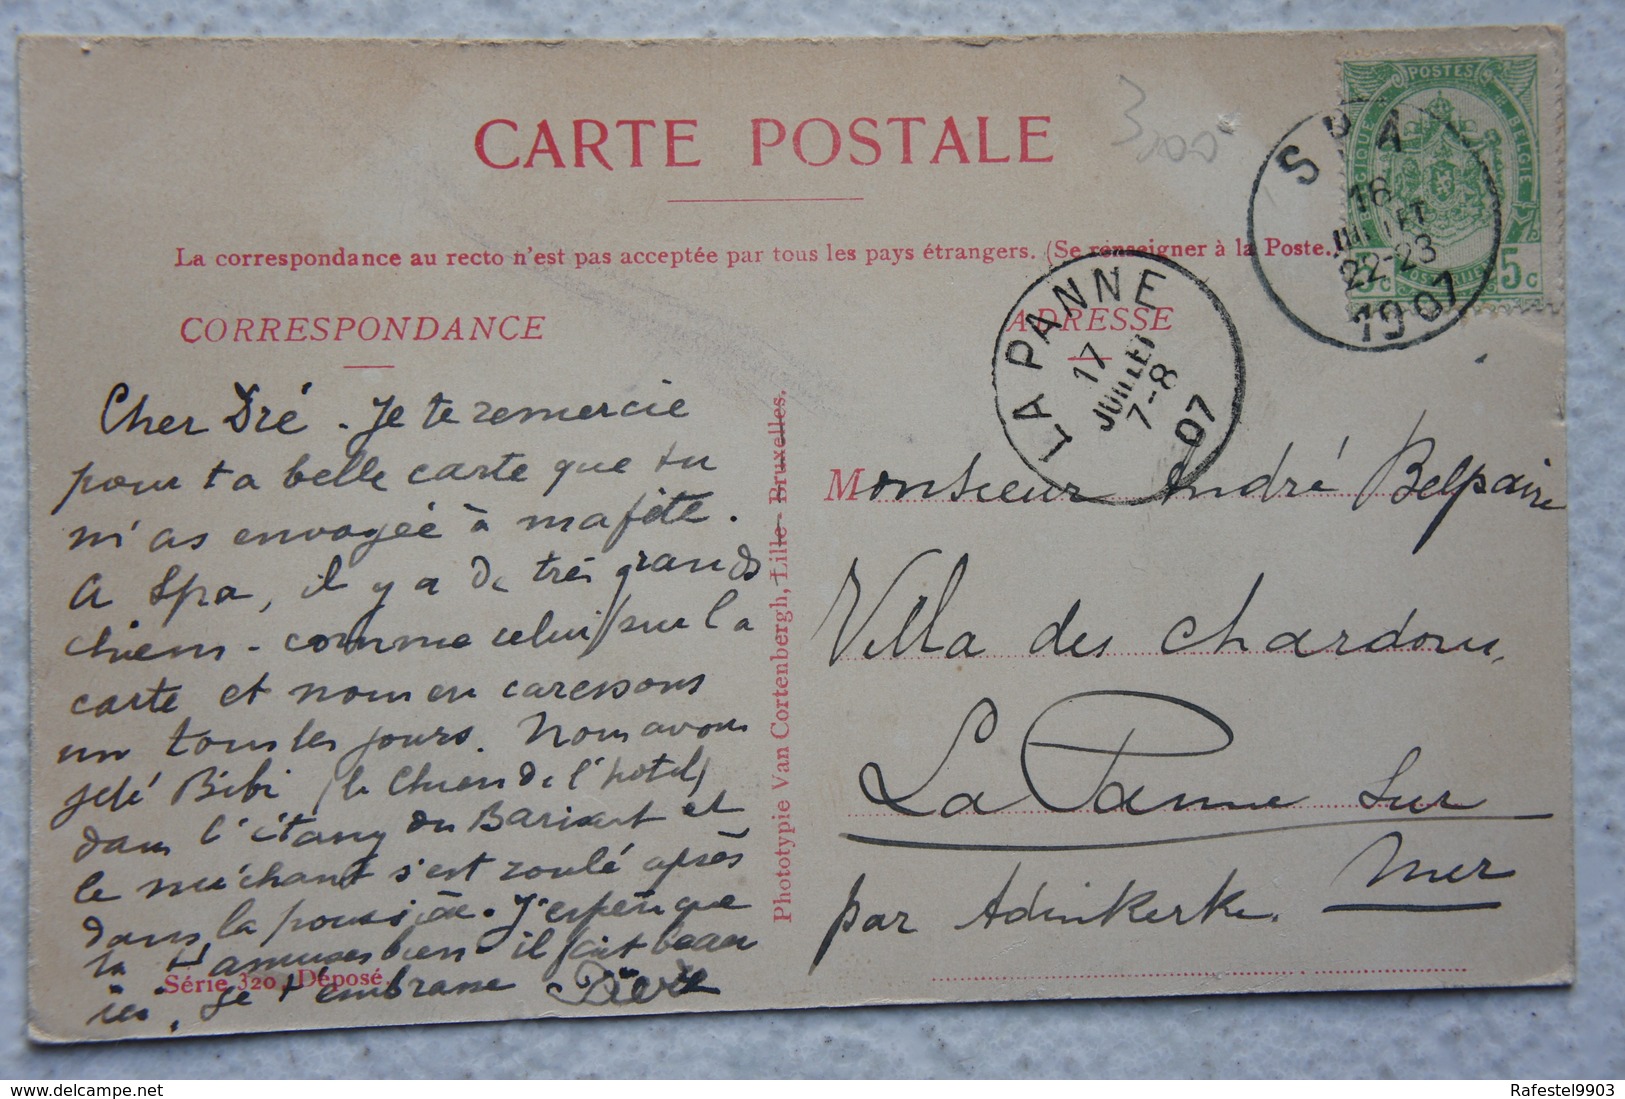 CARTE POSTALE
3,00
La correspondance au recto n'est pas acceptée par tous les pays étrangers. (Se renseigner à la Poste.)
CORRESPONDANCE
ADRESSE
POSTES
BELGIQUE
BELGIE
5 c
5 c
POSTERIJEN
SPA
16
JUILLET
22-23
1907
LA PANNE
17
JUILLET
7-8
07
Cher Dré. Je te remercie
pour ta belle carte que tu
m'as envoyée à ma fête.
A Spa, il y a de très grands
chiens - comme celui sur la
carte et nous en caressons
un tous les jours. Nous avons
jeté Bibi (le chien de l'hotel)
dans l'étang du Barisart et
le méchant s'est roulé après
dans la poussière. J'espère que
tu t'amuses bien il fait beau
ici. Je t'embrasse Pierre
Série 320, Déposé.
Phototypie Van Cortenbergh, Lille - Bruxelles.
Monsieur André Belpaire
Villa des Chardons,
La Panne sur
mer
par Adinkerke.
delcampe.net
Rafestel9903